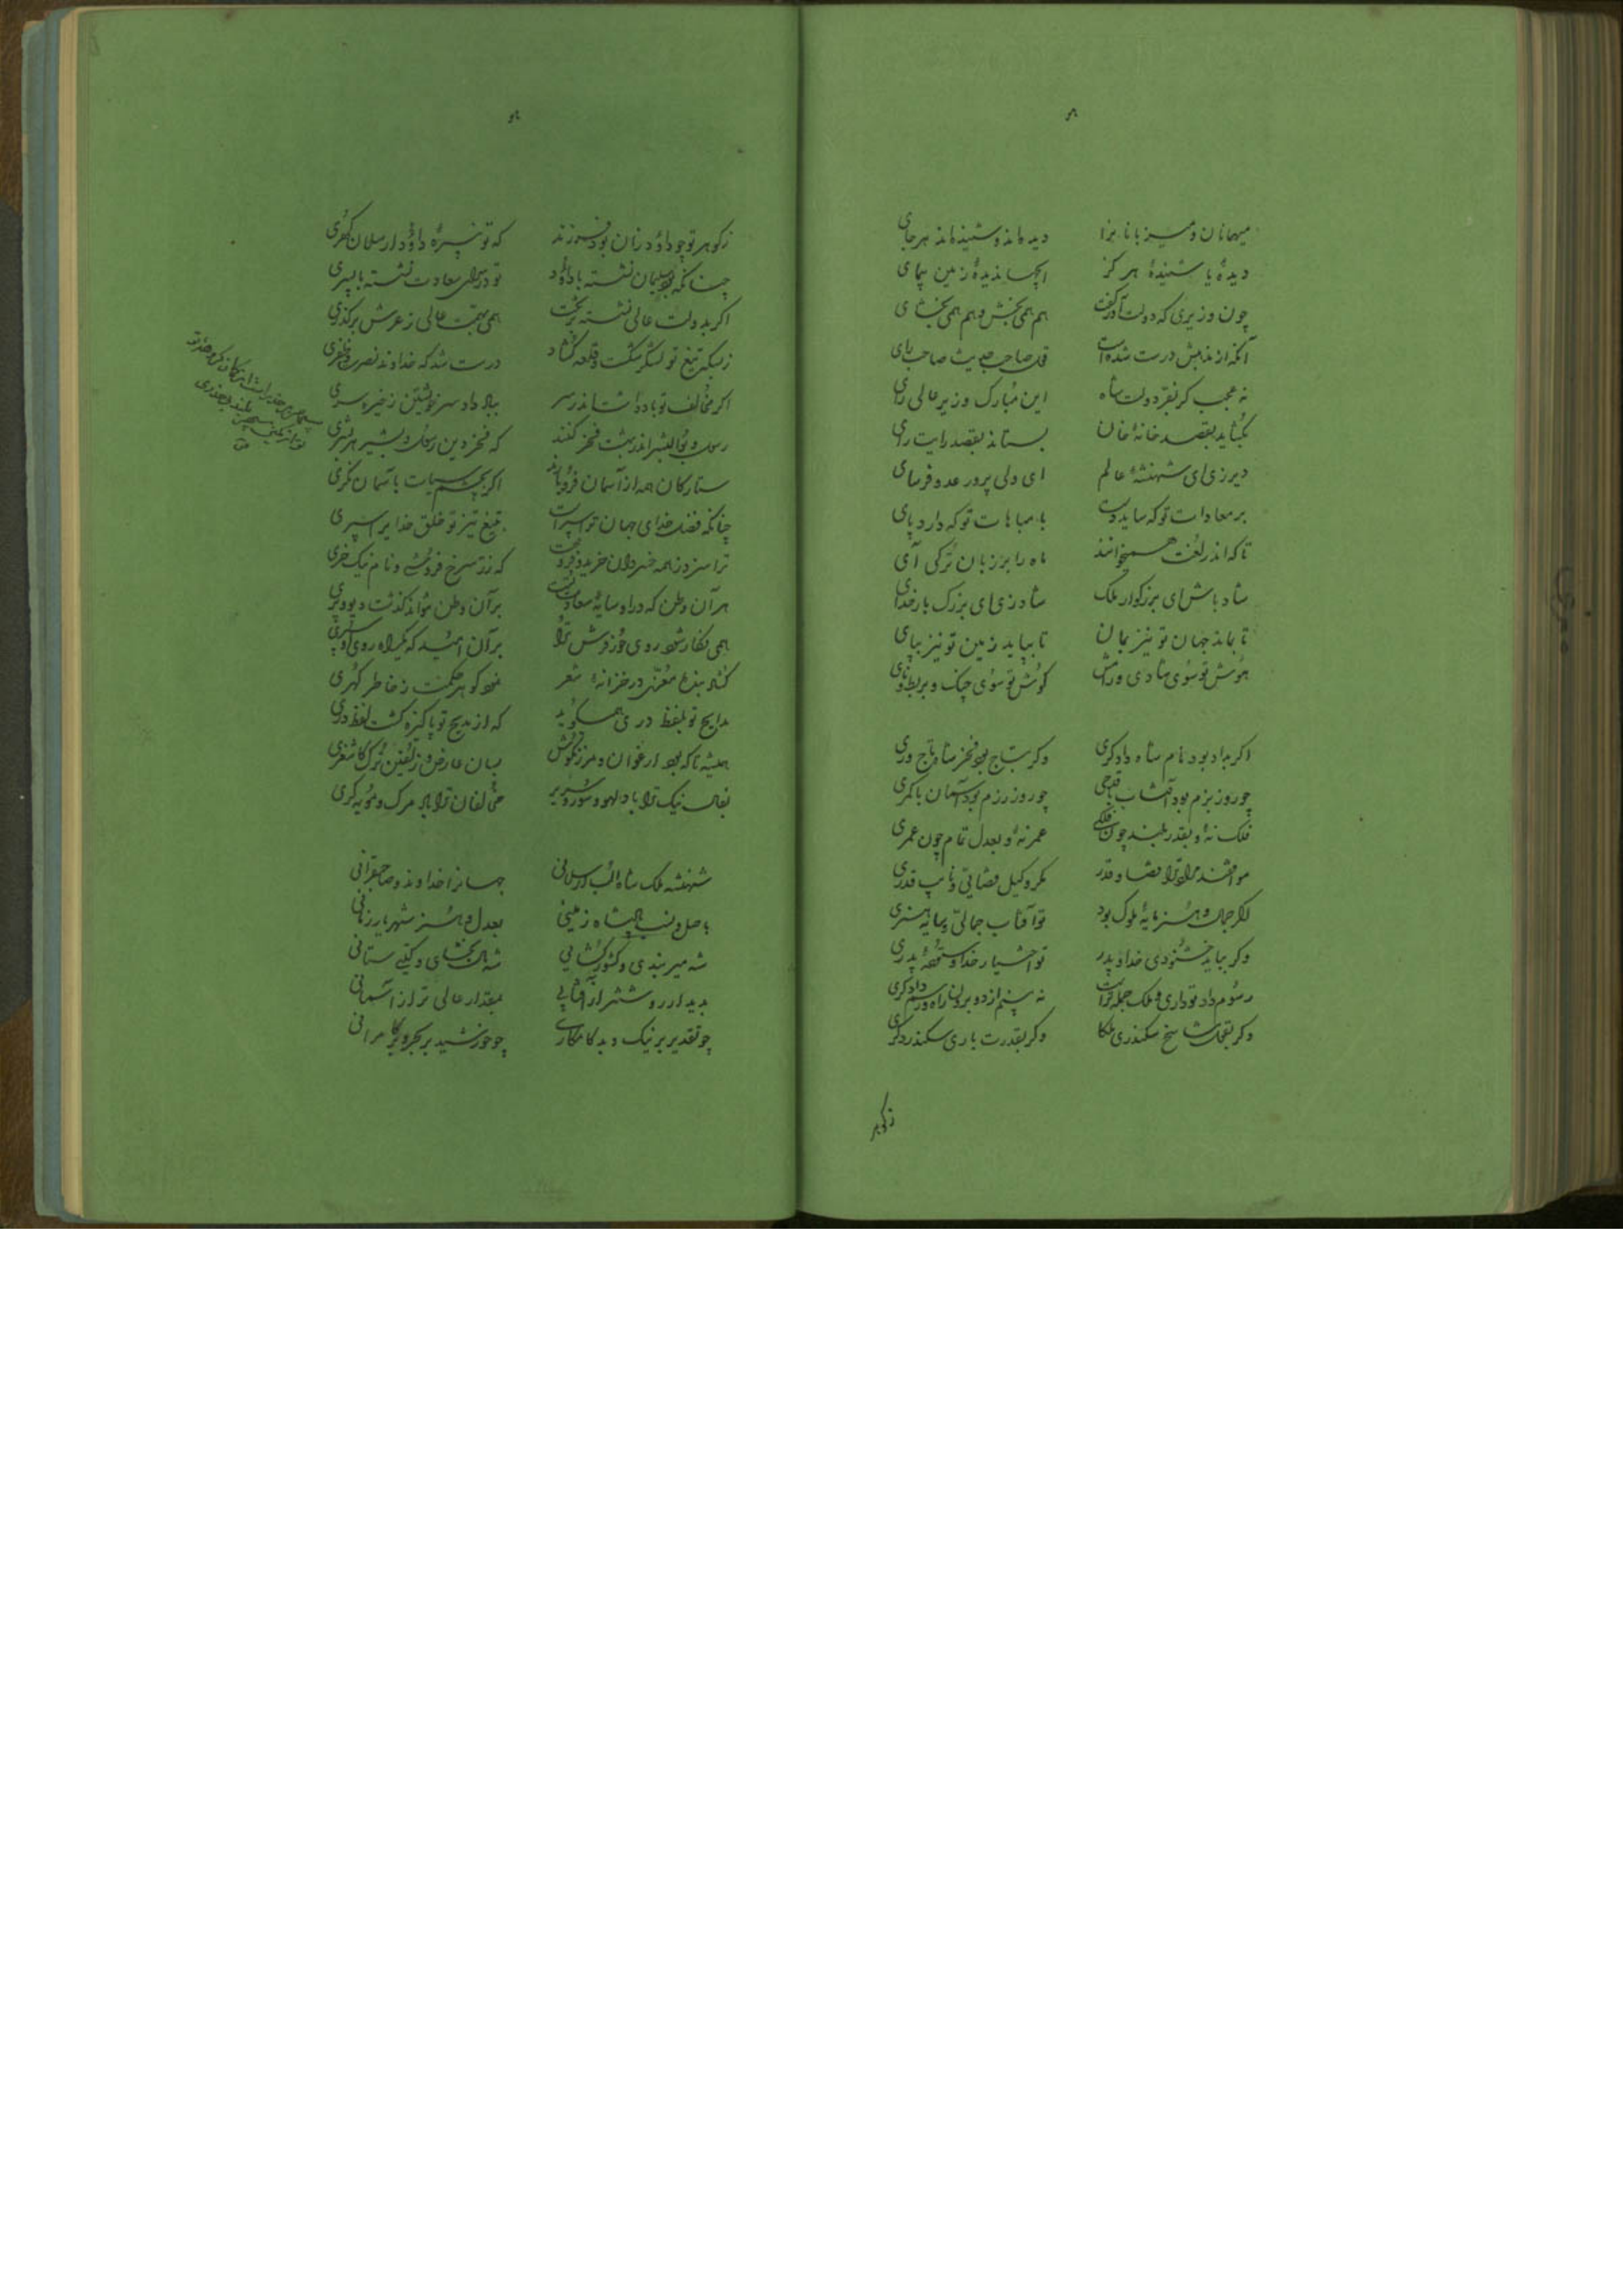 میهمانان و میزبانانرا دیده‌اند و شنیده‌اند هر جای
دیدهٔ یا شنیدهٔ هرگز زمین پیمای
چون وزیری که دولت هم همی بخش و هم همی بخشای
آنکه از مذهبش درست شده است صاحب رای
نه عجب کر بفر دولت شاه این مبارک وزیر عالی رای
بکشاید بقصد خانهٔ خان بستاند بقصد رایت رای
دیر زی ای شهنشهٔ عالم ای ولی پرور عدو فرسای
بر معادات تو که ساید دست با مباهات تو که دارد پای
تا که اندر لغت همیخوانند ماه را بر زبان ترکی آی
شاد باش ای بزرکوار ملک شاد زی ای بزرک بار خدای
تا بماند جهان تو نیز بمان تا بپاید زمین تو نیز بپای
هوش تو سوی شادی و رامش کوش تو سوی چنک و بربط و نای
اکر بداد بود نام شاه دادکری وکر بتاج بود فخر شاه تاج وری
چو روز بزم بود آفتاب با قدحی چو روز رزم بود آسمان با کمری
فلک نهٔ و بقدر بلند چون فلکی عمر نهٔ و بعدل تمام چون عمری
موافقند مراد ترا قضا و قدر مکر وکیل قضائی و نایب قدری
اکر جمال و هنر مایهٔ ملوک بود تو آفتاب جمالی و سایهٔ هنری
وکر بباید خشنودی خدا و پدر تو اختیار خدا و ستودهٔ پدری
رسوم داد تو داری و ملک جمله تراست نه بینم از دو برون راه و رسم دادکری
وکر بفتح سکندری ملکا وکر بقدرت باری سکندر دکری
زکوهر
زکوهر تو چو داود زان بود فرزند که تو نبیرهٔ داود ارسلان کهری
چنانکه بود سلیمان نشسته با داود تو در سرای سعادت نشسته با پسری
اکر بدولت عالی نشسته بر تخت همی بهمت عالی ز عرش برکذری
زبسکه تیغ تو لشکر شکست و قلعه کشاد درست شد که خداوند نصرت و ظفری
اکر مخالف تو باد داشت اندر سر بباد داد سر خویشتن ز خیره سری
رسول و بوالبشر اندر بهشت فخر کنند که فخر دین رسول و بشیر هر بشری
ستارکان همه از آسمان فرو بارند اکر بچشم سیاست بآسمان نکری
چنانکه فضل خدای جهان تو سپر است بتیغ تیز تو خلق خدایرا سپری
ترا سزد ز همه خسروان خرید و فروخت که زر سرخ فروشی و نام نیک خری
هر آن وطن که در او سایهٔ سعادت تست بر آن وطن نتواند کذشت دیو و پری
همی نکار شود روی حور فرش ترا بر آن امید که یکراه روی او سپری
کشاد بنده معزی در خزانهٔ شعر نمود کوهر حکمت ز خاطر کهری
مدایح تو بلفظ دری همیکوید که از مدیح تو پاکیزه کشت لفظ دری
همیشه تا که بود ارغوان و مرزنکوش بسان عارض و زلفین ترک کاشغری
بفال نیک ترا باد لهو و سور و سریر مخالفان ترا باد مرک و مویه کری
شهنشه ملک شاه الب ارسلانی جهانرا خداوند و صاحبقرانی
باصل و نسب پادشاه زمینی بعدل و هنر شهریار زمانی
شه میر بندی و کشور کشائی شه مال بخشای و کیتی ستانی
بدیدار روشنتر از آفتابی بمقدار عالی تر از آسمانی
چو تقدیر بر نیک و بد کامکاری چو خورشید بر بحر و بر کامرانی